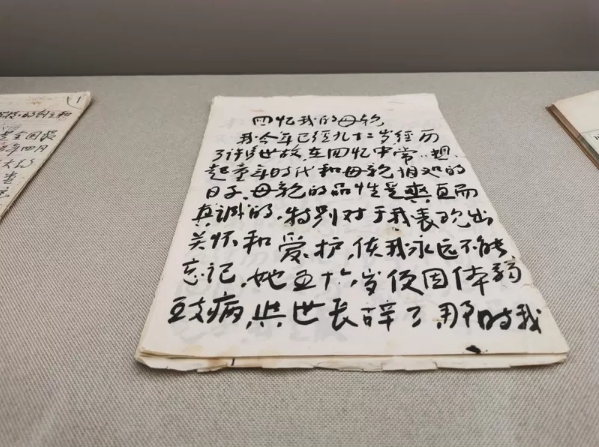 回忆我的母亲
我今年已经九十二岁经历
了许多世故，在回忆中常想
起童年时代和母亲相处的
日子，母亲的品性是爽直而
真诚的，特别对于我表现出
关怀和爱护，使我永远不能
忘记，她五十六岁便因体弱
病，与世长辞了，那时我